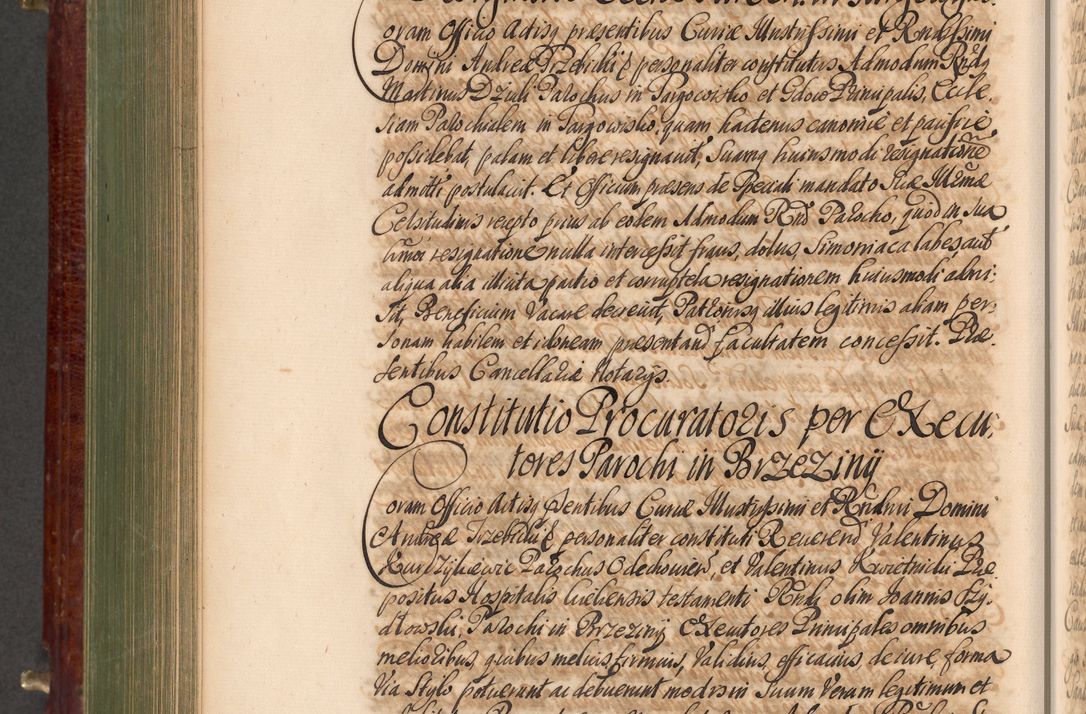 oram Officio Actisq; præsentibus Curiæ Illustrissimi et Rndissimi
Domini Andreæ Trzebicki & personaliter constitutus Admodum Rndq
Martinus Dzuli Parochus in Targowisko et Gdow Principalis, Eccle,
siam Parochialem in Targowisko, quam hactenus canonicè et pacificè
possidebat, palam et liberè resignauit, Suamq huiusmodi resignationē
admitti postulauit. Et Officium præsens de Speciali mandato Suæ Illmæ
Celsitudinis recepto prius ab eodem Admodum Rnd Parocho, quod in sua
resignatione nulla intercessit fraus, dolus, Simoniaca labes, aut
aliqua alia illicita pactio et corruptela resignationem huiusmodi admi-
sit, Beneficium Vacare decreuit, Patronisq illius legitimis aliam per,
sonam habilem et idoneam præsentand facultatem concessit. Præ
sentibus Cancellariæ Notarys.
Constitutio Procuratoris per Execu,
tores Parochi in Brzezinÿ
oram Officio Actisq Psentibus Curiæ Illustrissimi et Rndmi Domini
Andreæ Trzebicki & personaliter constituti Reuerend Valentinus
Parochus Odechouien, et Valentinus Kwietnicki Præ
positus Hospitalis testamenti Rndi olim Joannis
Parochi in Brzeziny Executores Principales omnibus
melioribus, quibus melius firmius, Validius, efficacius, de iure, forma
Via Stylo potuerunt ac debuerunt modis in Suum Verum legitimum et